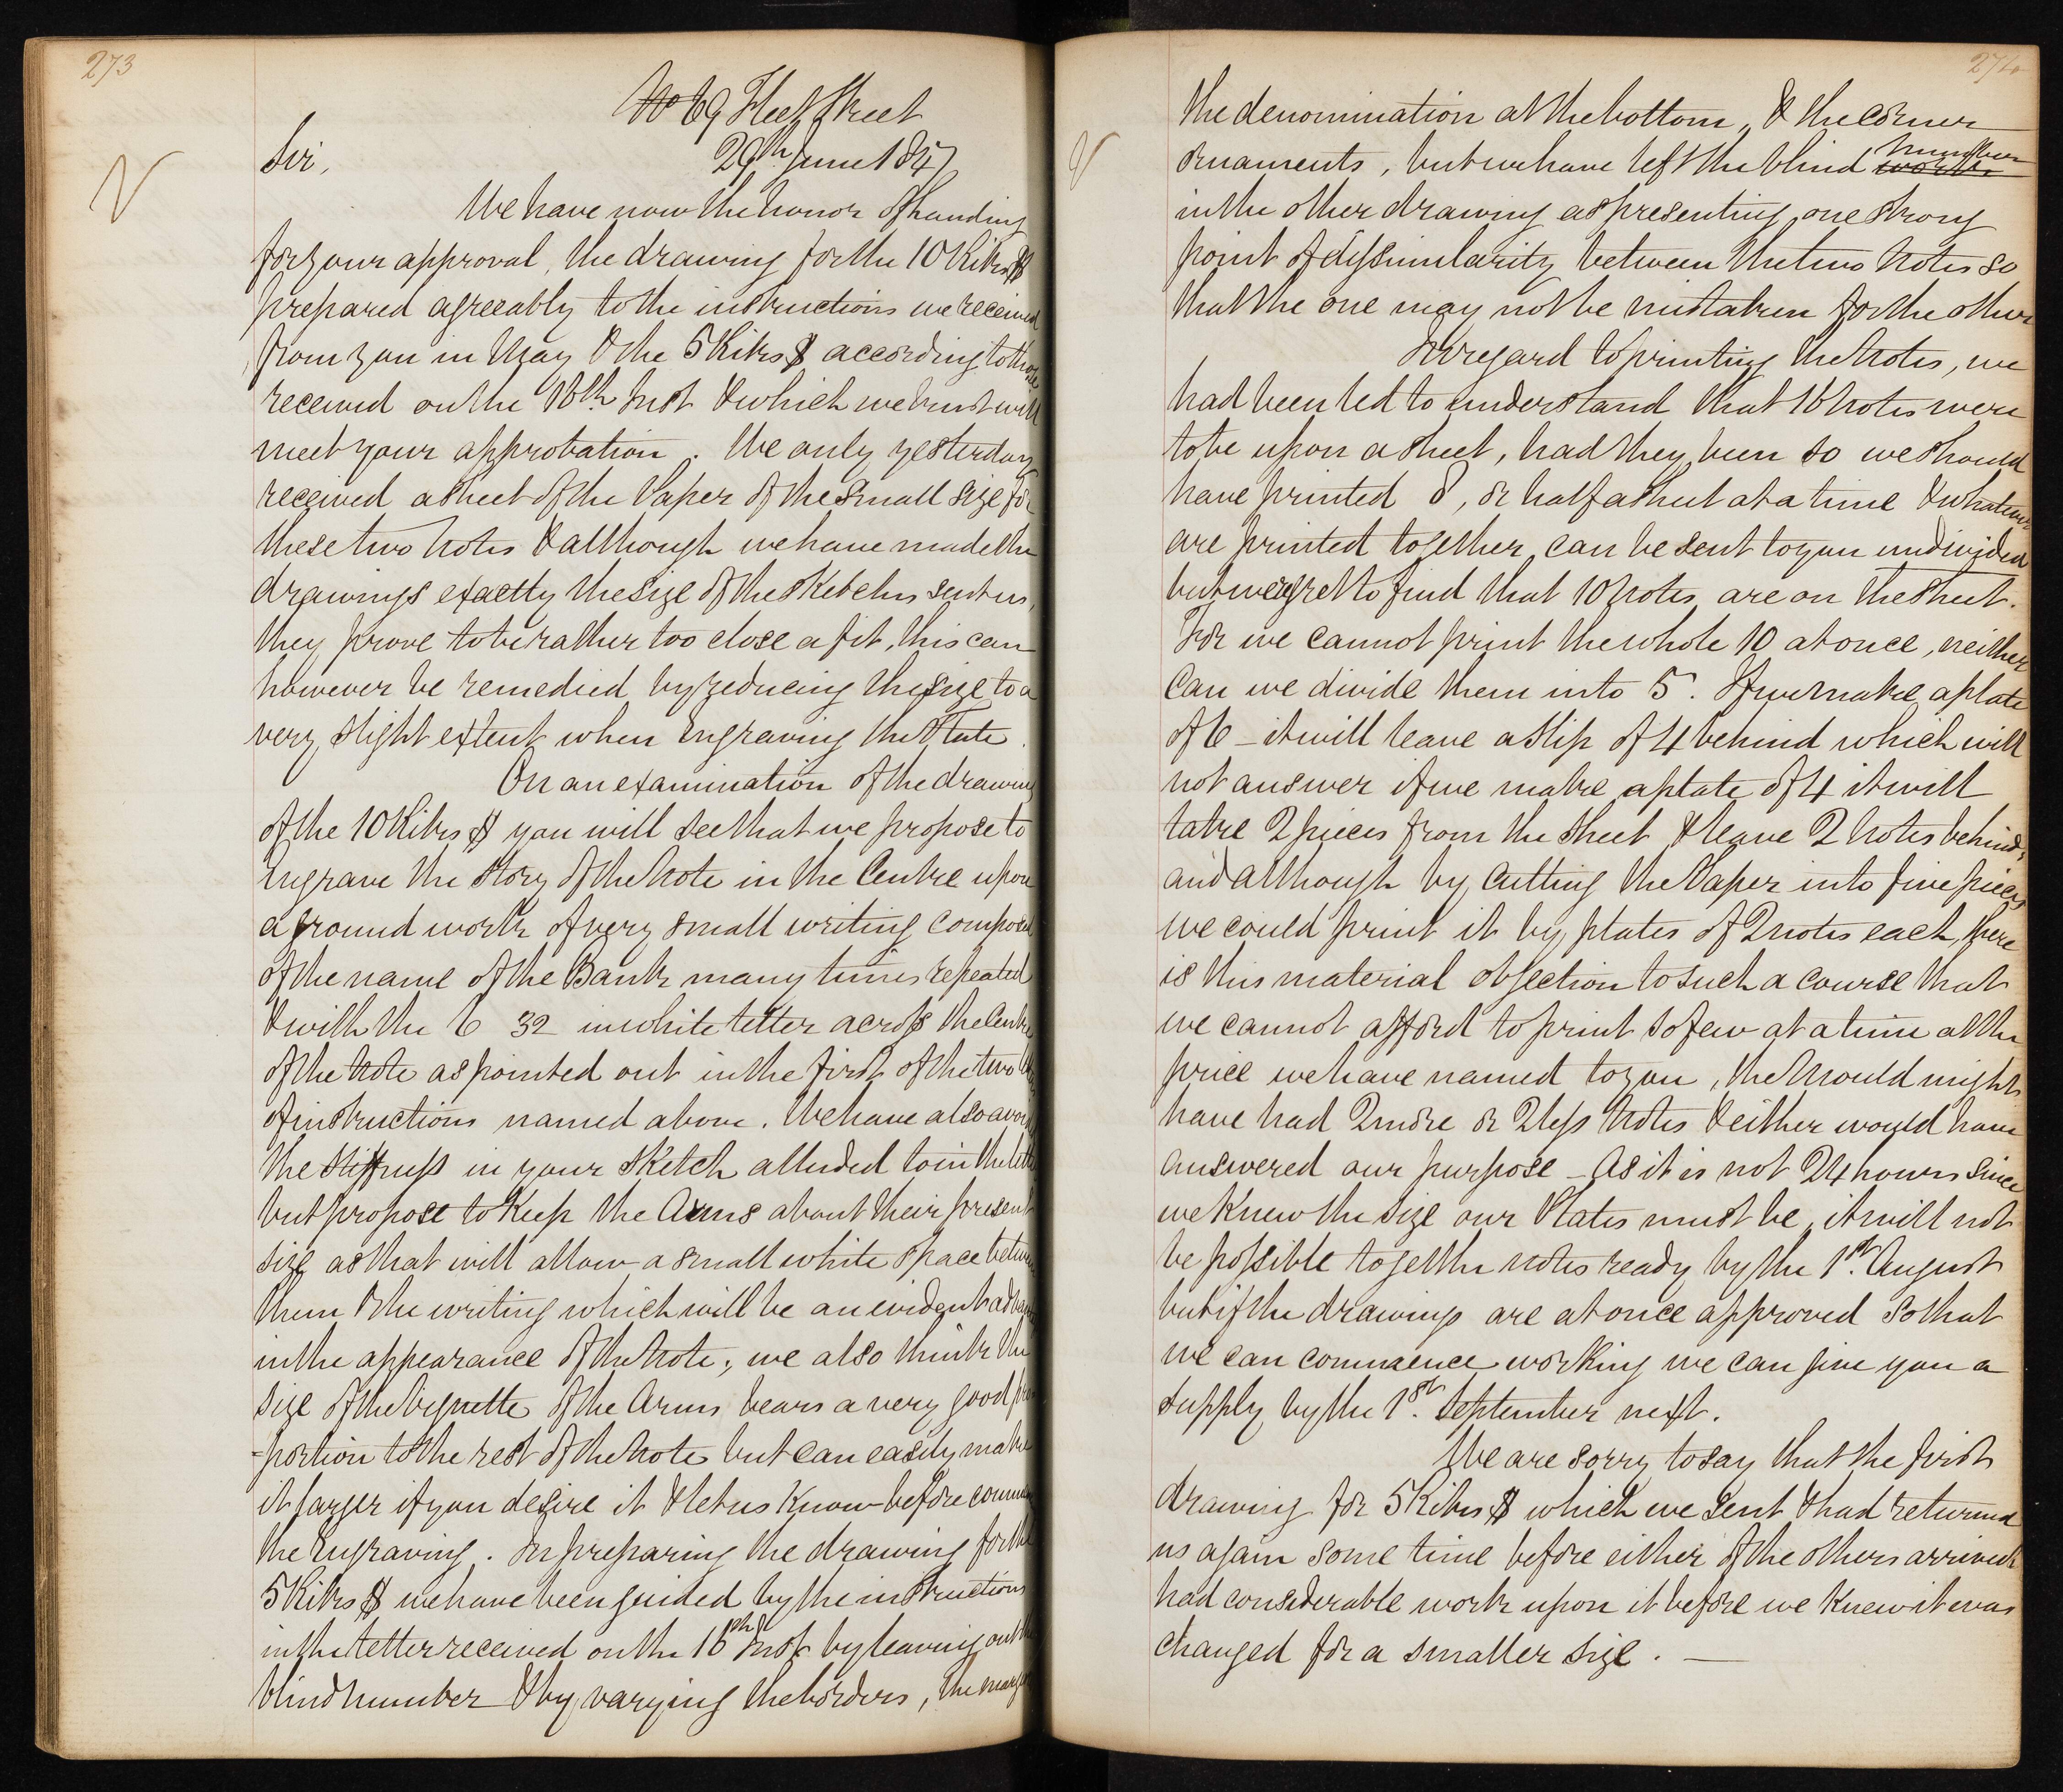 273
No 69 Fleet Street
Sir, 29th June 1847
We have now the honor of handing
for your approval, the drawing for the 10 Rikr $
prepared agreeably to the instructions we received
from you in May & the 5 Rikr $ according to those
received on the 16th Inst & which we trust will
meet your approbation. We only yesterday
received a sheet of the Paper of the small size for
these two Notes & although we have made the
drawings exactly the size of the sketches sent us,
they prove to be rather too close a fit, this can
however be remedied by reducing the size to a
very slight extent when Engraving the Plate.
On an examination of the drawing
of the 10 Rikr $ you will see that we propose to
Engrave the Story of the Note in the Centre upon
a ground work of very small writing composed
of the name of the Bank many times repeated
& with the 6 32 in white letter across the Centre
of the Note as pointed out in the first of the two
of instructions named above. We have also
the Stiffness in your sketch alluded to in the
but propose to keep the Arms about their present
size as that will allow a small white space between
them & the writing which will be an evident
in the appearance of the Note; we also think the
size of the Vignette of the Arms bears a very good pro
=portion to the rest of the Note but can easily make
it larger if you desire it & let us know before
the Engraving. In preparing the drawing for the
5 Rikr $ we have been guided by the instructions
in the letter received on the 16th Inst by leaving out the
blind number & by varying the borders, the
274
the denomination at the bottom, & the corner
ornaments, but we have left the blind number works
in the other drawing as presenting one strong
point of dissimilarity between the two Notes so
that the one may not be mistaken for the other
In regard to printing the Notes, we
had been led to understand that 16 Notes were
to be upon a sheet, had they been so we should
have printed 8, or half a sheet at a time & whatever
are printed together can be sent to you undivided
but we regret to find that 10 Notes are on the Sheet.
For we cannot print the whole 10 at once, neither
can we divide them into 5. If we make a plate
of 6 – it will leave a slip of 4 behind which will
not answer if we make a plate of 4 it will
take 2 pieces from the Sheet & leave 2 Notes behind,
and although by Cutting the Paper into five pieces
we could print it by plates of 2 notes each, there
is this material objection to such a course that
we cannot afford to print so few at a time at the
price we have named to you, the Mould might
have had 2 more or 2 less Notes & either would have
answered our purpose – As it is not 24 hours since
we knew the size our Plates must be, it will not
be possible to get the notes ready by the 1st. August
but if the drawings are at once approved so that
we can commence working we can give you a
supply by the 1st. September next.
We are sorry to say that the first
drawing for 5 Rikr $ which we sent & had returned
us again some time before either of the others arrived
had considerable work upon it before we knew it was
changed for a smaller size. —